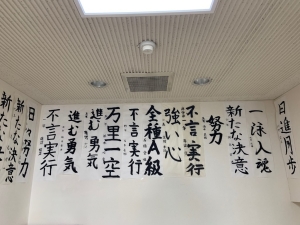 日進月歩
一泳入魂
新たな決意
努力
不言実行
強い心
全種A級
不言実行
万里一空
進む勇気
進む勇気
不言実行
日々努力
新たな決意
新たな決意